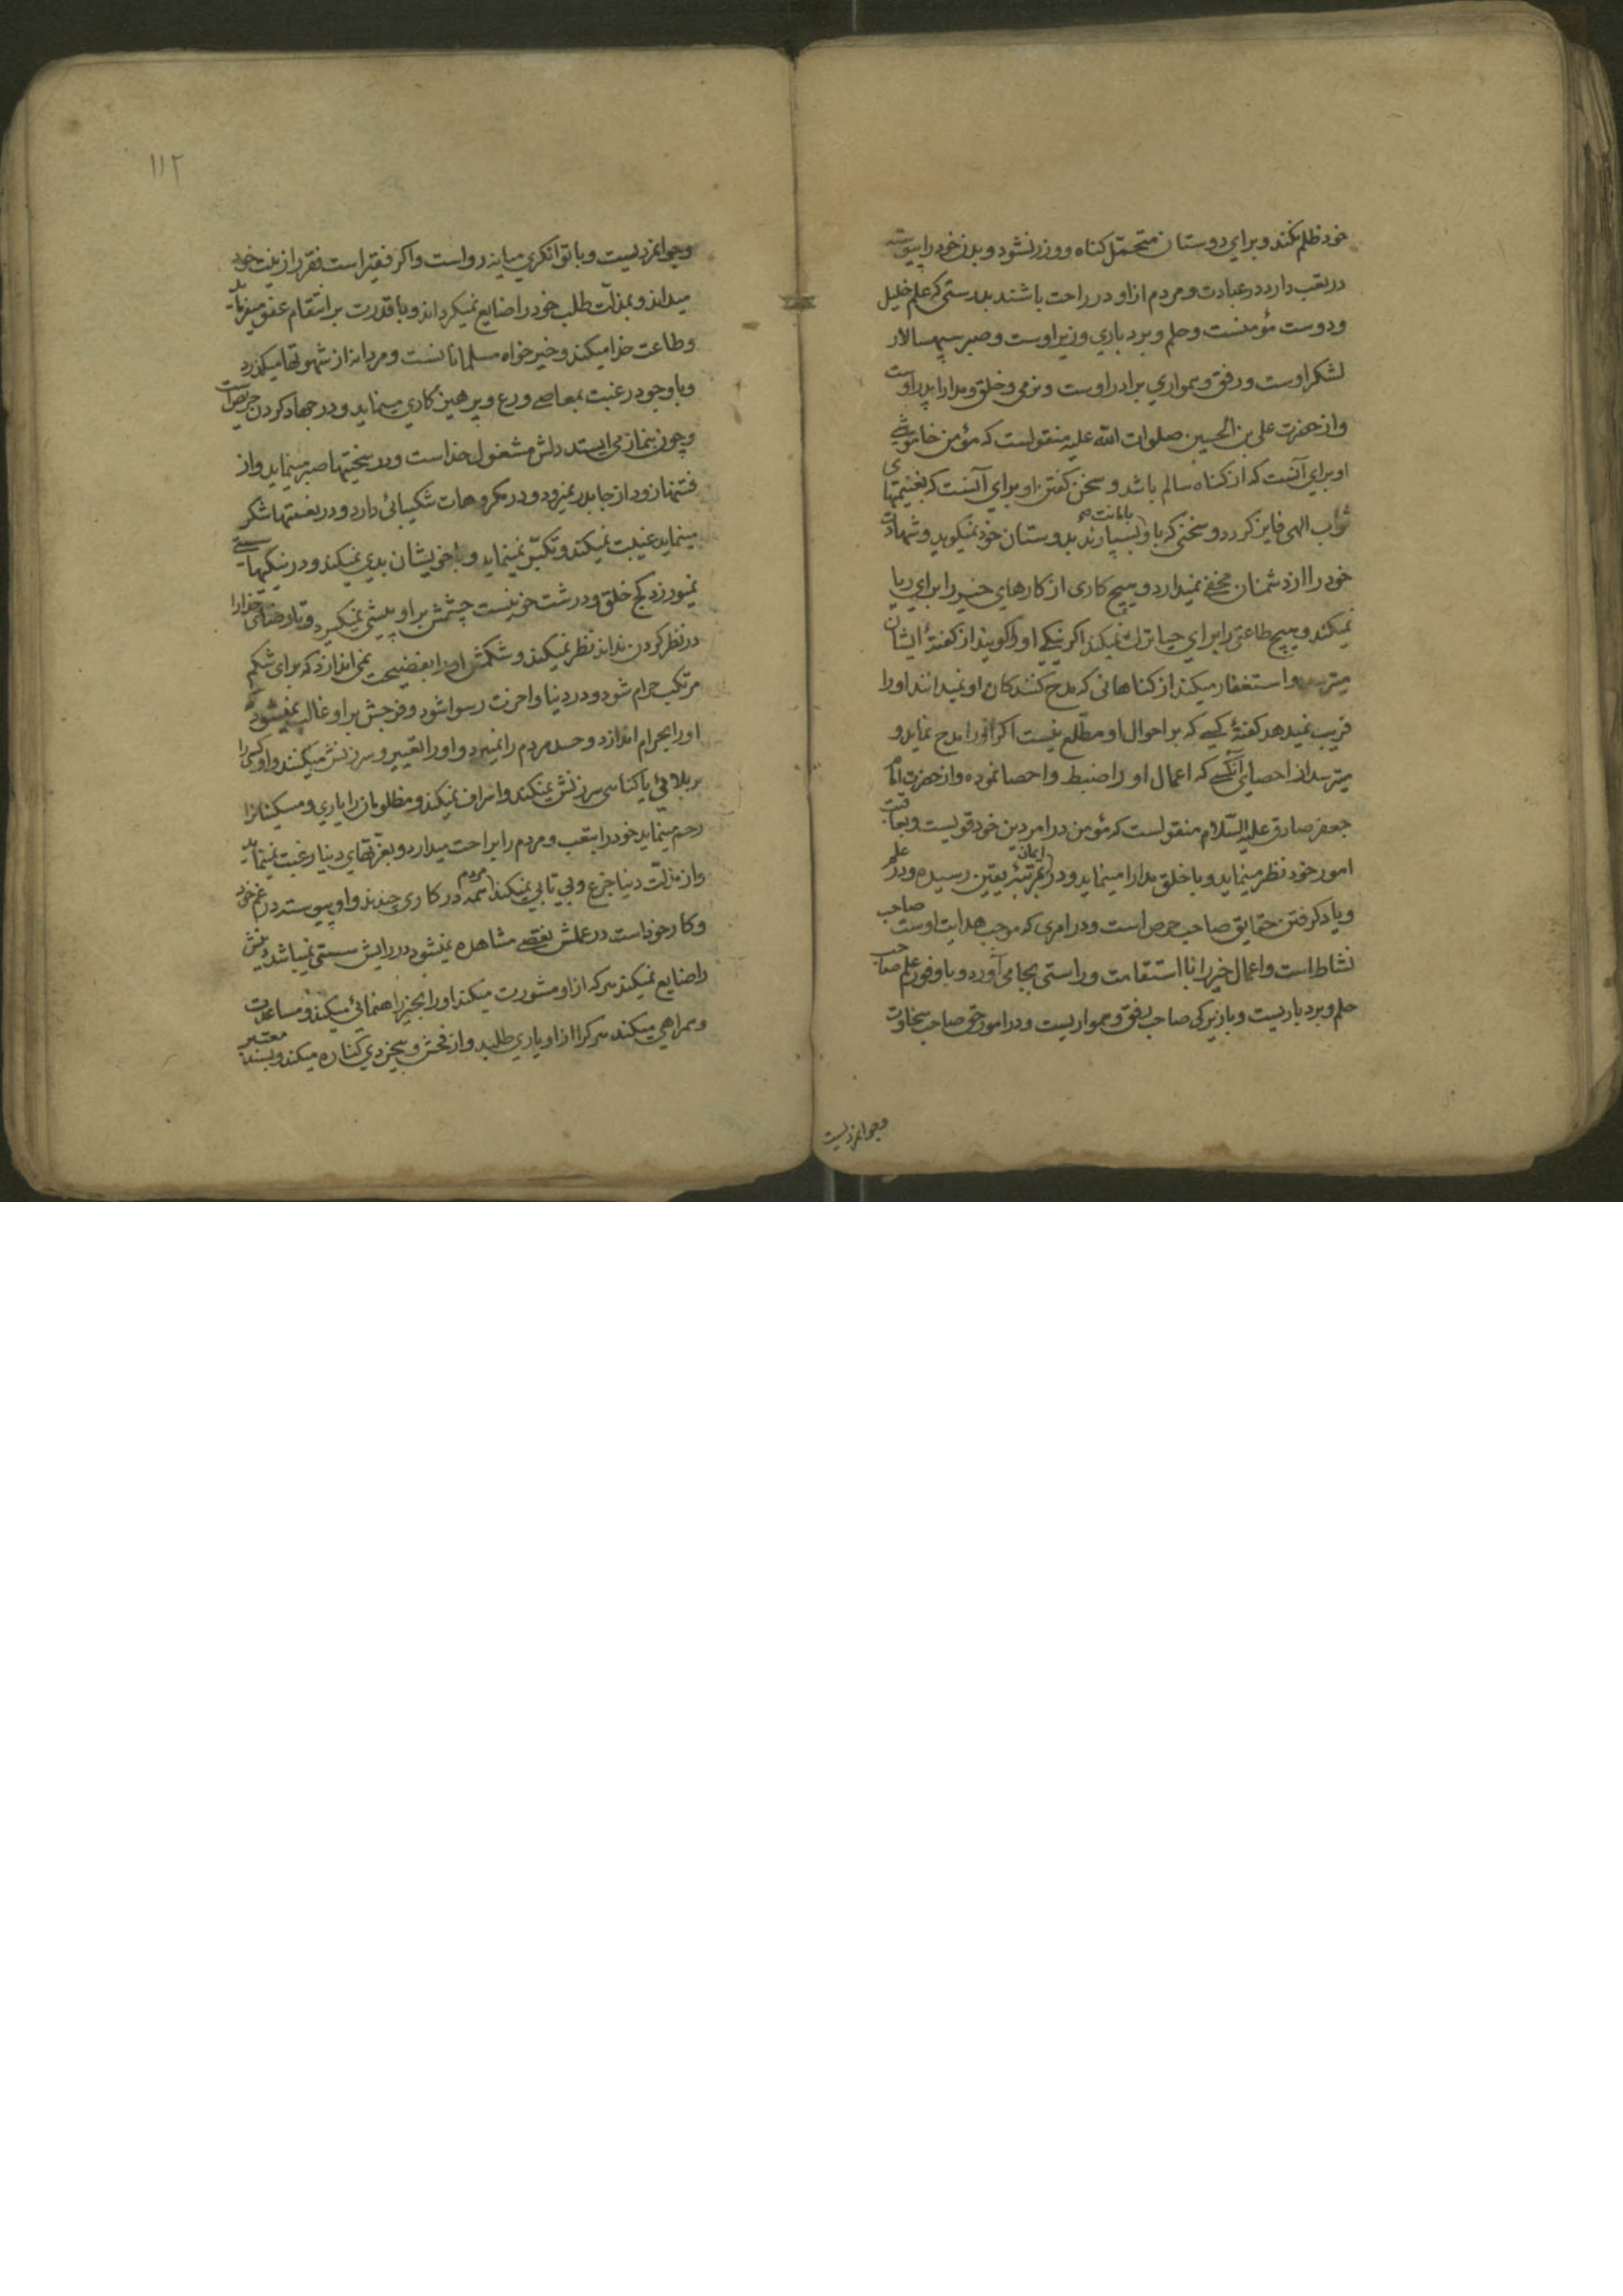 خود ظلم نکند و برای دوستان متحمّل کناه و وزر نشود و بدن خود را پیوسته
در تعب دارد در عبادت و مردم از او در راحت باشند بدرستی که علم خلیل
و دوست مؤمنست و حلم و بردباری وزیر اوست و صبر سپهسالار
لشکر اوست و رفق و همواری برادر اوست و نرمی و خلق و مدارا پدر اوست
و از حضرت علی بن الحسین صلوات الله علیه منقولست که مؤمن خاموشی
او برای آنست که از کناه سالم باشد و سخن کفتن او برای آنست که بغنیمتهای
ثواب الهی فایز کردد و سخنی که باو بامانت بسپارند بدوستان خود نمیکوید و شهادت
خود را از دشمنان مخفی نمیدارد و هیچ کاری از کارهای خیر را برای ریا
نمیکند و هیچ طاعتی را برای حیا ترك نمیکند اکر نیکی او را کویند از کفتهٔ ایشان
میترسد و استغفار میکند از کناهانی که مدح کنندکان او نمیدانند او را
فریب نمیدهد کفتهٔ کسی که بر احوال او مطّلع نیست اکر او را مدح نماید و
میترسد از احصای آنکسی که اعمال او را ضبط و احصا نموده و از حضرت امام
جعفر صادق علیه السّلام منقولست که مؤمن در امر دین خود قویست و بعاقبت
امور خود نظر مینماید و با خلق مدارا مینماید و در ایمان بمرتبهٔ یقین رسیده و در علم
و یاد کرفتن حقایق صاحب حرص است و در امری که موجب هدایت اوست صاحب
نشاط است و اعمال خیر را با استقامت و راستی بجا می آورد و با وفور علم صاحب
حلم و بردباریست و با زیرکی صاحب رفق و همواریست و در امور حق صاحب سخاوت
وجوانمردیست
۱۱۲
وجوانمردیست و با توانکری میانه رو است و اکر فقیر است فقر را زینت خود
میداند و بمذلّت طلب خود را ضایع نمیکرداند و با قدرت بر انتقام عفو میفرماید
و طاعت خدا میکند و خیرخواه مسلمانانست و مردانه از شهوتها میکذرد
و با وجود رغبت بمعاصی ورع و پرهیزکاری مینماید و در جهاد کردن حریص است
و چون بنماز می ایستد دلش مشغول خدا است و در سختیها صبر مینماید و از
فتنها زود از جا بدر نمیرود و در مکروهات شکیبائی دارد و در نعمتها شکر
مینماید غیبت نمیکند و تکبّر نمینماید و با خویشان بدی نمیکند و در نیکیها سستی
نمیورزد کج خلق و درشت خو نیست چشمش بر او پیشی نمیکیرد و تا رضای خدا را
در نظر کردن نداند نظر نمیکند و شکمش او را بفضیحت نمی اندازد که برای شکم
مرتکب حرام شود و در دنیا و اخرت رسوا شود و فرجش بر او غالب نمیشود که
او را بحرام اندازد و حسد مردم را نمیبرد و او را تعییر و سرزنش میکنند و او کسی را
ببلائی یا کناهی سرزنش نمیکند و اسراف نمیکند و مظلومان را یاری و مسکینانرا
رحم مینماید خود را بتعب و مردم را براحت میدارد و بعزّتهای دنیا رغبت نمینماید
و از مذلّت دنیا جزع و بی تابی نمیکند مردم همه در کاری چندند و او پیوسته در غم خود
و کار خود است در عملش نقصی مشاهده نمیشود در رایش سستی نمیباشد دینش
را ضایع نمیکند هرکه از او مشورت میکند او را بخیر راهنمائی میکند و مساعدت
و همراهی میکند هرکرا از او یاری طلبد و از فحش و بیخردی کناره میکند و بسند معتبر